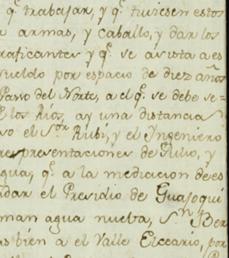 qᵉ trabajar, y qᵉ tuviesen estos
armas, y caballo, y dar los
raficantes y qᵉ se avista a es
sueldo por espacio de diez años
Passo del Norte, a el qᵉ se debe se
los Rios, ay una distancia
el Sᵒʳ Rubi, y el Ingeniero
representaciones de Julio, y
gua, qᵉ a la mediacion de es
dar el Presidio de Guajoqui
man agua nueva, Sⁿ Ber
as bien a el Valle por